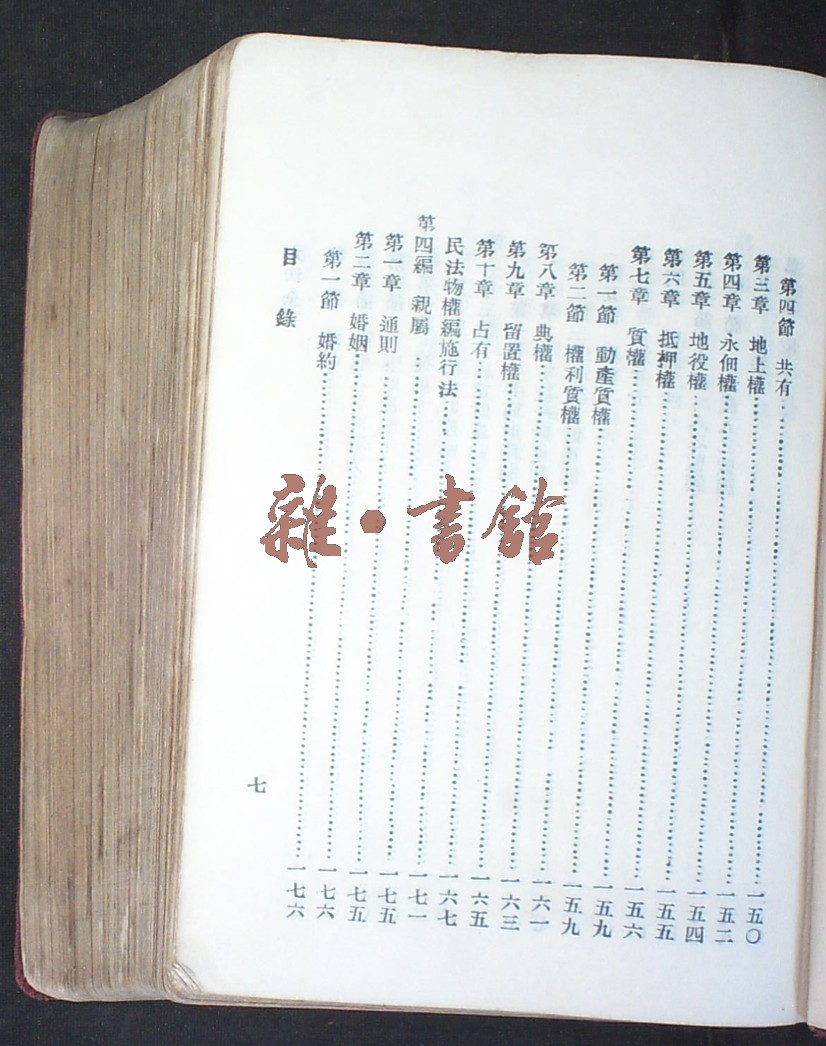 第四節 共有……一五〇
第三章 地上權……一五二
第四章 永佃權……一五四
第五章 地役權……一五五
第六章 抵押權……一五六
第七章 質權……一五九
第一節 動產質權……一五九
第二節 權利質權……一六一
第八章 典權……一六三
第九章 留置權……一六五
第十章 占有……一六七
民法物權編施行法……一七一
第四編 親屬……一七五
第一章 通則……一七五
第二章 婚姻……一七六
第一節 婚約……一七六
目錄
七
雜·書館